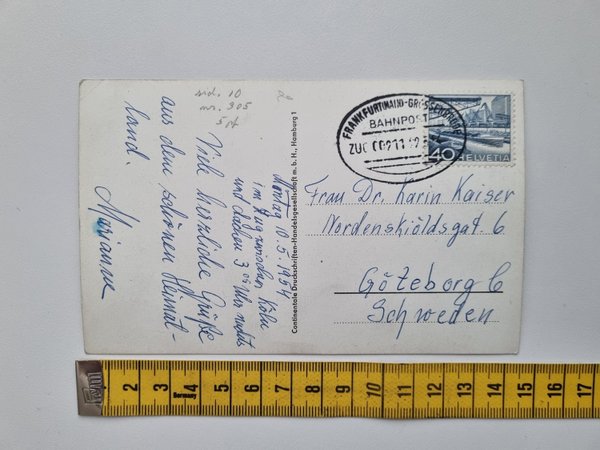 sid. 10
nr. 305
5 pf
Montag 10.5.1954
im Zug zwischen Köln
und Aachen 3 05 Uhr nachts
Viele herzliche Grüße
aus dem schönen Heimat-
land.
Marianne
Continentale Druckschriften-Handelsgesellschaft m. b. H., Hamburg 1
BAHNPOST
ZUG
40 HELVETIA
Frau Dr. Karin Kaiser
Nordenskiöldsgat. 6
Göteborg C
Schweden
2 3 4 5 6 7 8 9 10 11 12 13 14 15 16 17
Germany